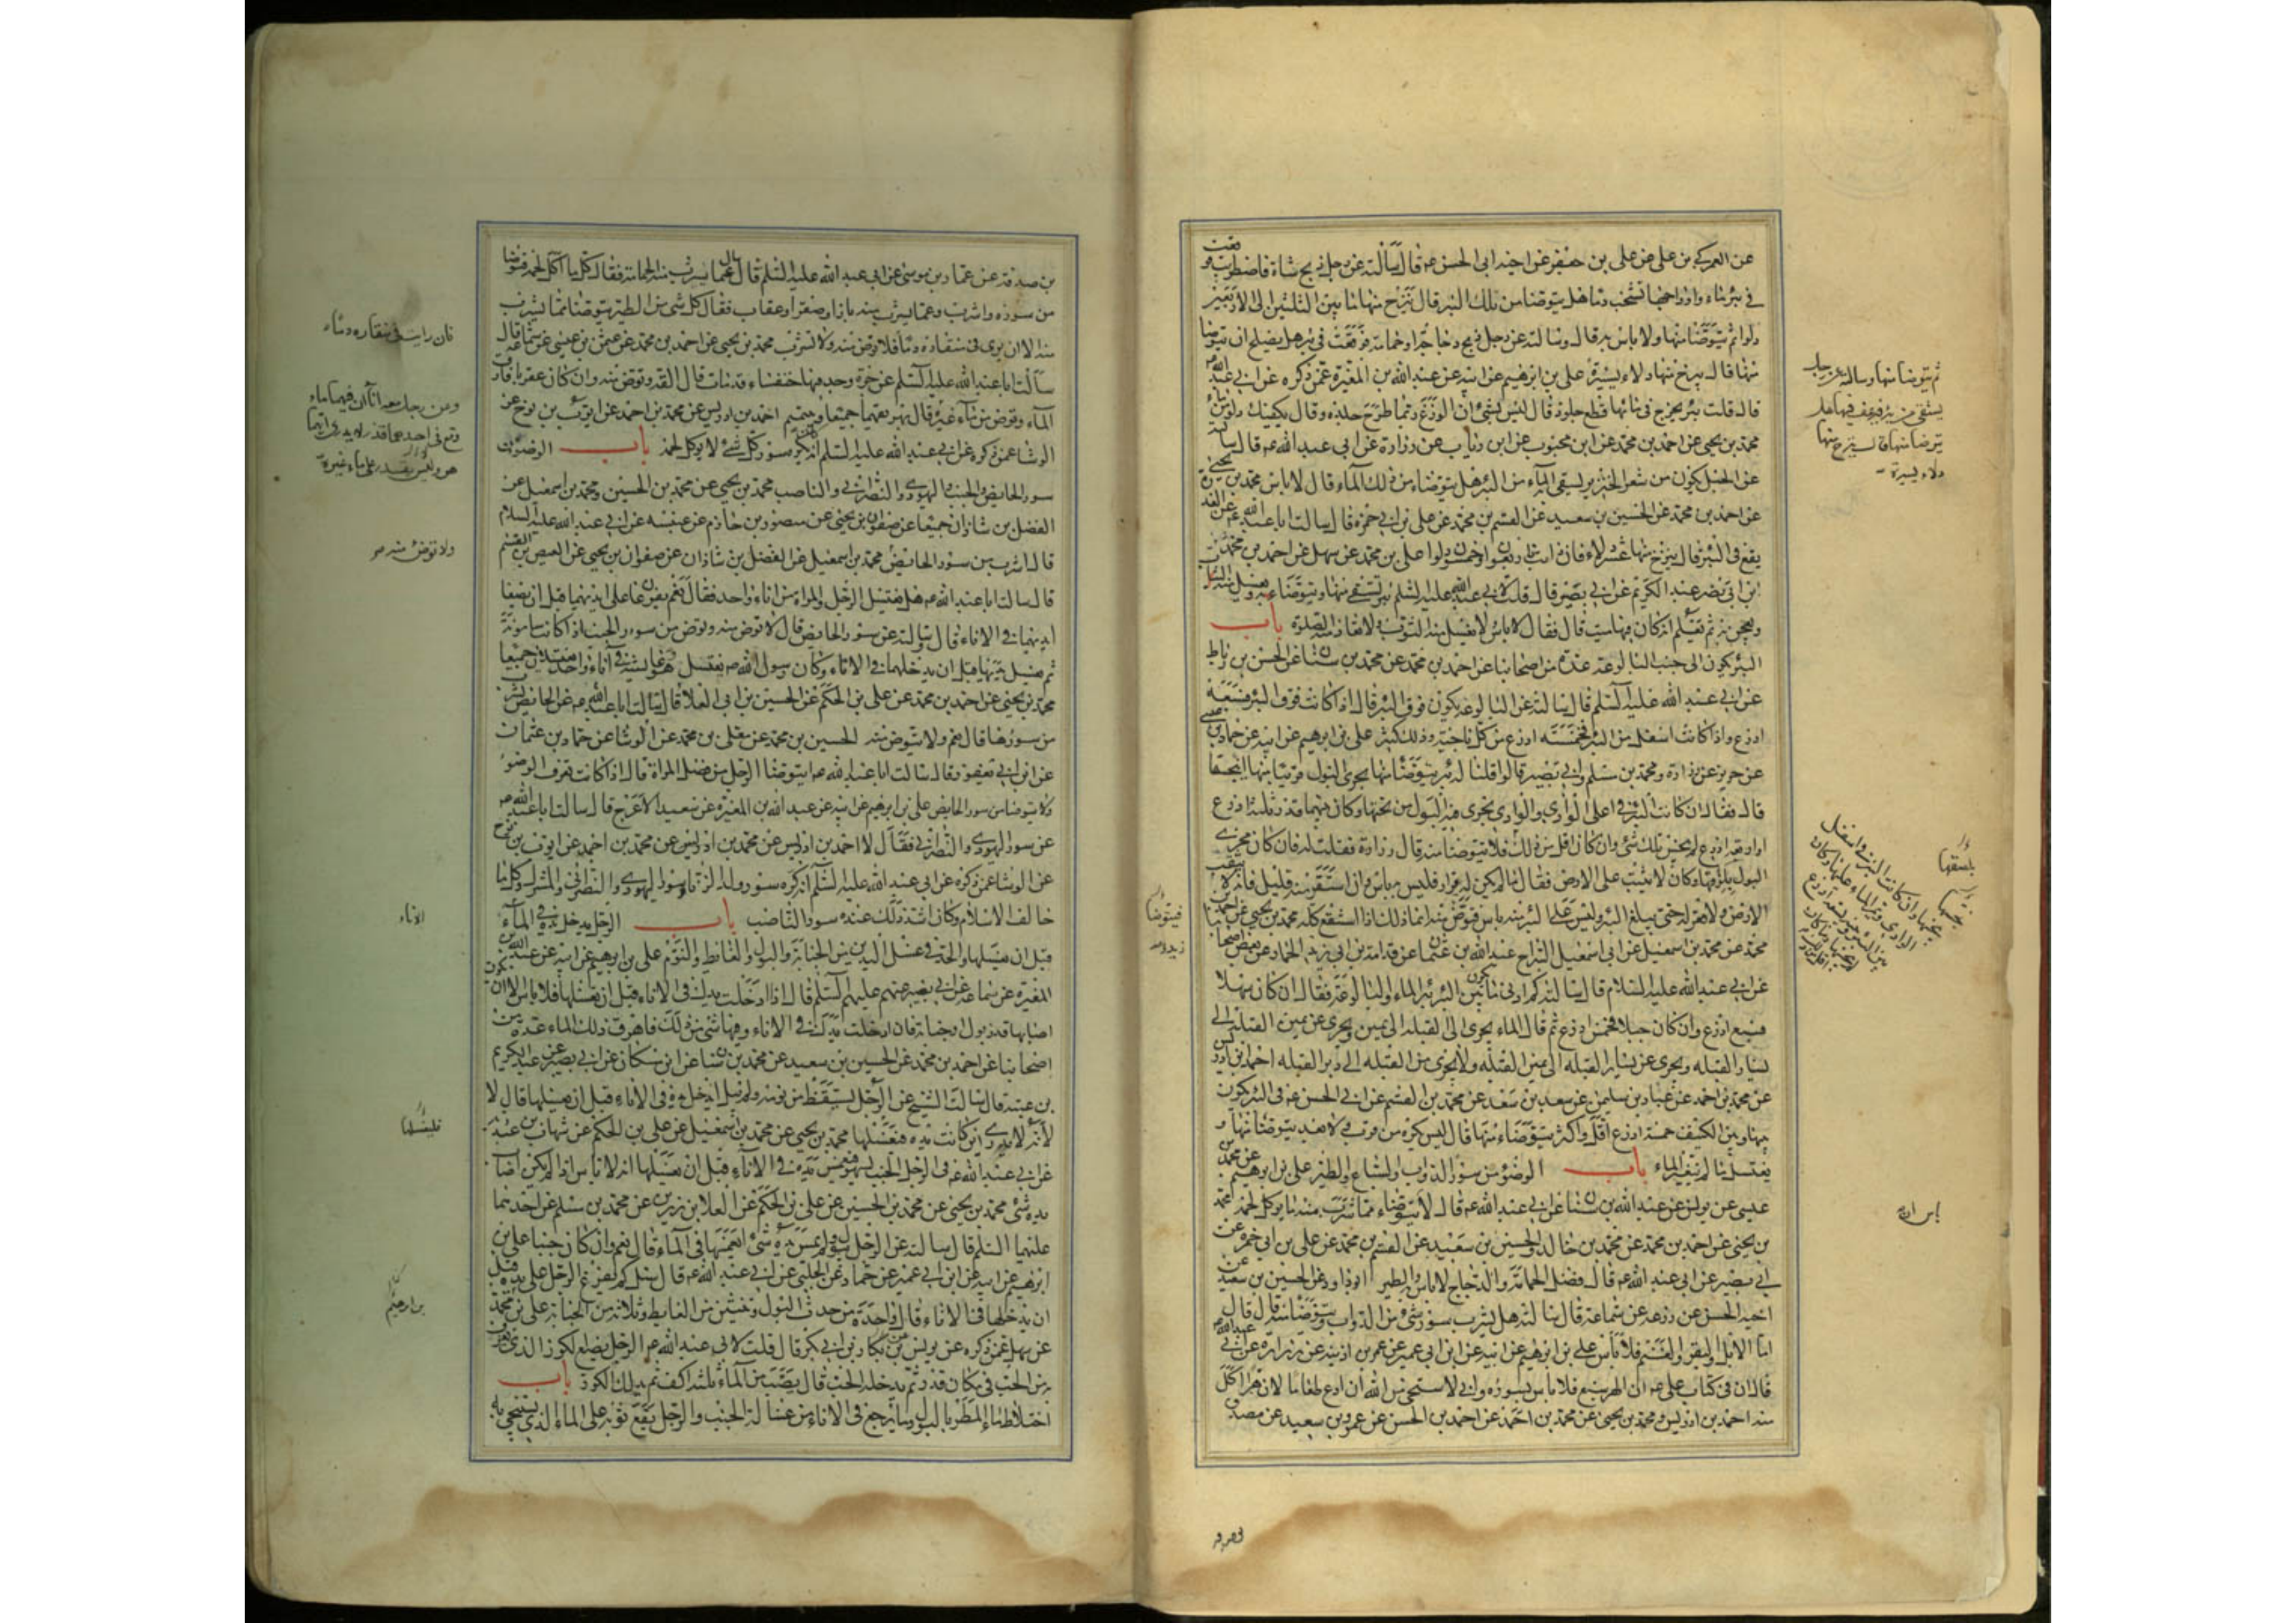 عن العمركي بن علي عن علي بن جعفر عن اخيه ابي الحسن عه قال سالته عن رجل ذبح شاة فاضطربت فوقعت
في بئر ماء واوداجها تشخب دما هل يتوضا من تلك البئر قال ينزح منها ما بين الثلثين الى الاربعين
دلوا ثم يتوضا منها ولا باس به قال وسالته عن رجل ذبح دجاجة او حمامة فوقعت في بئر هل يصلح ان يتوضا
منها قال ينزح منها دلاء يسيرة علي بن ابرهيم عن ابيه عن عبد الله بن المغيرة عمن ذكره عن ابي عبد الله عه
قال قلت بئر يخرج في مائها قطع جلود قال ليس بشئ ان الوزغ ربما طرح جلده وقال يكفيك دلو من ماء
محمد بن يحيى عن احمد بن محمد عن ابن محبوب عن ابن رئاب عن زرارة عن ابي عبد الله عه قال سالته
عن الحبل يكون من شعر الخنزير يستقى به الماء من البئر هل يتوضاء من ذلك الماء قال لا باس محمد بن يحيى
عن احمد بن محمد عن الحسين بن سعيد عن القسم بن محمد عن علي بن ابي حمزه قال سالت ابا عبد الله عه عن العذرة
يقع في البئر قال ينزح منها عشر دلاء فان ذابت فاربعون او خمسون دلوا علي بن محمد عن سهل عن احمد بن محمد بن
ابي نصر عن عبد الكريم عن ابي بصير قال قلت لابي عبد الله عليه السلم بئر يستقى منها ويتوضاء به ويغسل منه الثياب
ويعجن به ثم يعلم انه كان فيها ميت قال فقال لا باس لا يغسل منه الثوب ولا تعاد منه الصلوة باب
البئر يكون الى جنب البالوعة عدة من اصحابنا عن احمد بن محمد عن محمد بن سنان عن الحسن بن رباط
عن ابي عبد الله عليه السلم قال سالته عن البالوعه يكون فوق البئر قال اذا كانت فوق البئر فسبعة
اذرع واذا كانت اسفل من البئر فخمسة اذرع من كل ناحيته وذلك كثير علي بن ابرهيم عن ابيه عن حماد بن عيسى
عن حريز عن زرارة ومحمد بن مسلم وابي بصير قالوا قلنا له بئر يتوضا منها يجري البول قريبا منها اينجسها
قال فقال ان كانت البئر في اعلى الوادي والوادي يجري فيه البول من تحتها وكان بينهما قدر ثلثة اذرع
او اربعة اذرع لم ينجس ذلك شئ وان كان اقل من ذلك فلا يتوضا منه قال زرارة فقلت له فان كان مجرى
البول يلزقها وكان لا يثبت على الارض فقال ما لم يكن له قرار فليس به باس وان استقر منه قليل فانه لا يثقب
الارض ولا قعر له حتى يبلغ البئر وليس على البئر منه باس فتوض منه انما ذلك اذا استنقع كله محمد بن يحيى عن احمد بن
محمد عن محمد بن اسمعيل عن ابي اسمعيل السراج عبد الله بن عثمان عن قدامة بن ابي زيد الحماد عن بعض اصحابنا
عن ابي عبد الله عليه السلام قال سالته كم ادنى ما يكون بين البئر بئر الماء والبالوعة فقال ان كان سهلا
فسبع اذرع وان كان جبلا فخمس اذرع ثم قال الماء يجري الى القبله الى يمين ويجري عن يمين القبلة الى
يسار القبله ويجري عن يسار القبله الى يمين القبله ولا يجري من القبله الى دبر القبله احمد بن ادريس
عن محمد بن احمد عن عباد بن سليمن عن سعد بن سعد عن محمد بن القسم عن ابي الحسن عه في البئر يكون
بينها وبين الكنيف خمسة اذرع اقل واكثر يتوضاء منها قال ليس يكره من قرب ولا بعد يتوضا منها و
يغتسل ما لم يتغير الماء باب الوضوء من سؤر الدواب والسباع والطير علي بن ابرهيم عن محمد بن
عيسى عن يونس عن عبد الله بن سنان عن ابي عبد الله عه قال لا يتوضاء مما شرب منه ما يوكل لحمه محمد
بن يحيى عن احمد بن محمد عن محمد بن خالد والحسين بن سعيد عن القسم بن محمد عن علي بن ابي حمزه عن
ابي بصير عن ابي عبد الله عه قال فضل الحمامة والدجاج لا باس به والطير ابو داود عن الحسين بن سعيد عن
اخيه الحسن عن زرعه عن سماعة قال سالته هل يشرب سؤر شئ من الدواب ويتوضا منه قال قال
اما الابل والبقر والغنم فلا باس علي بن ابرهيم عن ابيه عن ابن ابي عمير عن عمر بن اذينه عن زرارة عن ابي عبد الله عه
قال ان في كتاب علي عه ان الهر سبع فلا باس بسؤره واني لاستحيي من الله ان ادع طعاما لان هرا اكل
منه احمد بن ادريس ومحمد بن يحيى عن محمد بن احمد عن احمد بن الحسن عن عمرو بن سعيد عن مصدق
ثم يتوضا منها وسالته عن رجل
يستقي من بئر فيرعف فيها هل
يتوضا منها قال ينزح منها
دلاء يسيرة
يلصقها
ينجسها
باس ان
فيتوضا
بن صدقة عن عمار بن موسى عن ابي عبد الله عليه السلم قال سئل عما يشرب منه الحمامة فقال كل ما اكل لحمه فتوضا
من سؤره واشرب وعما يشرب منه باز او صقر او عقاب فقال كل شئ من الطير يتوضا مما يشرب
منه الا ان يرى في منقاره دما فلا توض منه ولا تشرب محمد بن يحيى عن احمد بن محمد عن عثمن بن عيسى عن سماعة قال
سالت ابا عبد الله عليه السلم عن جرة وجد فيها خنفساء قد مات قال القه وتوض منه وان كان عقربا فارق
الماء وتوض من ماء غيره قال يهريقهما جميعا ويتيمم احمد بن ادريس عن محمد بن احمد عن ايوب بن نوح عن
الوشا عمن ذكره عن ابي عبد الله عليه السلم انه كره سؤر كل شئ لا يوكل لحمه باب الوضوء من
سؤر الحايض والجنب واليهودي والنصراني والناصب محمد بن يحيى عن محمد بن الحسين ومحمد بن اسمعيل عن
الفضل بن شاذان جميعا عن صفوان بن يحيى عن منصور بن حازم عن عنبسه عن ابي عبد الله عليه السلام
قال اشرب من سؤر الحايض محمد بن اسمعيل عن الفضل بن شاذان عن صفوان بن يحيى عن العيص بن القسم
قال سالت ابا عبد الله عه هل يغتسل الرجل والمراة من اناء واحد فقال نعم يفرغان على ايديهما قبل ان يضعا
ايديهما في الاناء قال وسالته عن سؤر الحايض قال لا توض منه وتوض من سؤر الجنب اذا كانت مامونة
ثم تغسل يديها قبل ان يدخلهما في الاناء وكان رسول الله ص يغتسل هو وعايشه في اناء واحد يغتسلان جميعا
محمد بن يحيى عن احمد بن محمد عن علي بن الحكم عن الحسين بن ابي العلا قال سالت ابا عبد الله عه عن الحايض يشرب
من سؤرها قال نعم ولا يتوض منه الحسين بن محمد عن معلى بن محمد عن الوشا عن حماد بن عثمان
عن ابن ابي يعفور قال سالت ابا عبد الله عه ايتوضا الرجل من فضل المراة قال اذا كانت تعرف الوضوء
ولا يتوضا من سؤر الحايض علي بن ابرهيم عن ابيه عن عبد الله بن المغيرة عن سعيد الاعرج قال سالت ابا عبد الله عه
عن سؤر اليهودي والنصراني فقال لا احمد بن ادريس عن محمد بن احمد عن ايوب بن نوح
عن الوشا عمن ذكره عن ابي عبد الله عليه السلم انه كره سؤر ولد الزنا وسؤر اليهودي والنصراني والمشرك وكل ما
خالف الاسلام وكان اشد ذلك عنده سؤر الناصب باب الرجل يدخل يده في الماء
قبل ان يغسلها والحد في غسل اليدين من الجنابة والبول والغايط والنوم علي بن ابرهيم عن ابيه عن عبد الله بن
المغيرة عن سماعة عن ابي بصير عنهم عليهم السلم قال اذا ادخلت يدك في الاناء قبل ان تغسلها فلا باس الا ان يكون
اصابها قذر بول او جنابة فان ادخلت يدك في الاناء وفيها شئ من ذلك فاهرق ذلك الماء عدة من
اصحابنا عن احمد بن محمد عن الحسين بن سعيد عن محمد بن سنان عن ابن مسكان عن ابي بصير عن عبد الكريم
بن عتبه قال سالت الشيخ عن الرجل يستيقظ من نومه ولم يبل ايدخل يده في الاناء قبل ان يغسلها قال لا
لانه لا يدري اين كانت يده فيغسلها محمد بن يحيى عن محمد بن اسمعيل عن علي بن الحكم عن شهاب بن عبد ربه
عن ابي عبد الله عه في الرجل الجنب يسهو فيغمس يده في الاناء قبل ان يغسلها انه لا باس اذا لم يكن اصاب
يده شئ محمد بن يحيى عن محمد بن الحسين عن علي بن الحكم عن العلا بن رزين عن محمد بن مسلم عن احدهما
عليهما السلم قال سالته عن الرجل يبول ولم يمس يده شئ ايغمسها في الماء قال نعم وان كان جنبا علي بن
ابرهيم عن ابيه عن ابن ابي عمير عن حماد عن الحلبي عن ابي عبد الله عه قال سئل كم يفرغ الرجل على يده قبل
ان يدخلها في الاناء قال واحدة من حدث البول وثنتين من الغايط وثلاثة من الجنابة علي بن محمد
عن سهل عمن ذكره عن يونس عن بكار بن ابي بكر قال قلت لابي عبد الله عه الرجل يضع الكوز الذي يغرف به
من الحب في مكان قذر ثم يدخله الحب قال يصب من الماء ثلثة اكف ثم يدلك الكوز باب
اختلاط ماء المطر بالبول وما يرجع في الاناء من غسالة الجنب والرجل يقع ثوبه على الماء الذي يستنجي به
فان رايت في منقاره دماء
وعن رجل معه اناآن فيهما ماء
وقع في احدهما قذر لا يدري ايهما
هو وليس يقدر على ماء غيره
ولا توض منه
الاناء
فليغسلها
بن ابرهيم